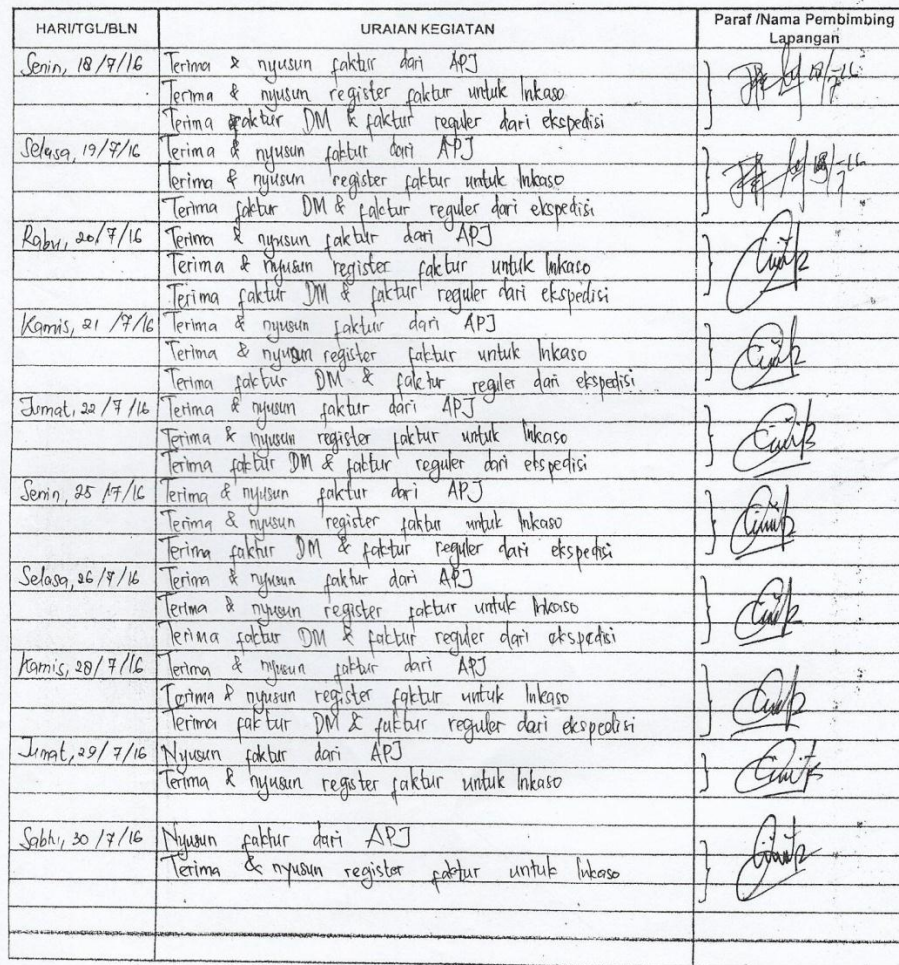 HARI/TGL/BLN URAIAN KEGIATAN Paraf /Nama Pembimbing
Lapangan
Senin, 18/7/16 Terima & nyusun faktur dari APJ
Terima & nyusun register faktur untuk Inkaso
Terima faktur DM & faktur reguler dari ekspedisi
Selasa, 19/7/16 Terima & nyusun faktur dari APJ
Terima & nyusun register faktur untuk Inkaso
Terima faktur DM & faktur reguler dari ekspedisi
Rabu, 20/7/16 Terima & nyusun faktur dari APJ
Terima & nyusun register faktur untuk Inkaso
Terima faktur DM & faktur reguler dari ekspedisi
Kamis, 21 /7/16 Terima & nyusun faktur dari APJ
Terima & nyusun register faktur untuk Inkaso
Terima faktur DM & faktur reguler dari ekspedisi
Jumat, 22 /7 /16 Terima & nyusun faktur dari APJ
Terima & nyusun register faktur untuk Inkaso
Terima faktur DM & faktur reguler dari ekspedisi
Senin, 25 /7/16 Terima & nyusun faktur dari APJ
Terima & nyusun register faktur untuk Inkaso
Terima faktur DM & faktur reguler dari ekspedisi
Selasa, 26/7/16 Terima & nyusun faktur dari APJ
Terima & nyusun register faktur untuk Inkaso
Terima faktur DM & faktur reguler dari ekspedisi
Kamis, 28/7/16 Terima & nyusun faktur dari APJ
Terima & nyusun register faktur untuk Inkaso
Terima faktur DM & faktur reguler dari ekspedisi
Jumat, 29/7/16 Nyusun faktur dari APJ
Terima & nyusun register faktur untuk Inkaso
Sabtu, 30 /7/16 Nyusun faktur dari APJ
Terima & nyusun register faktur untuk Inkaso